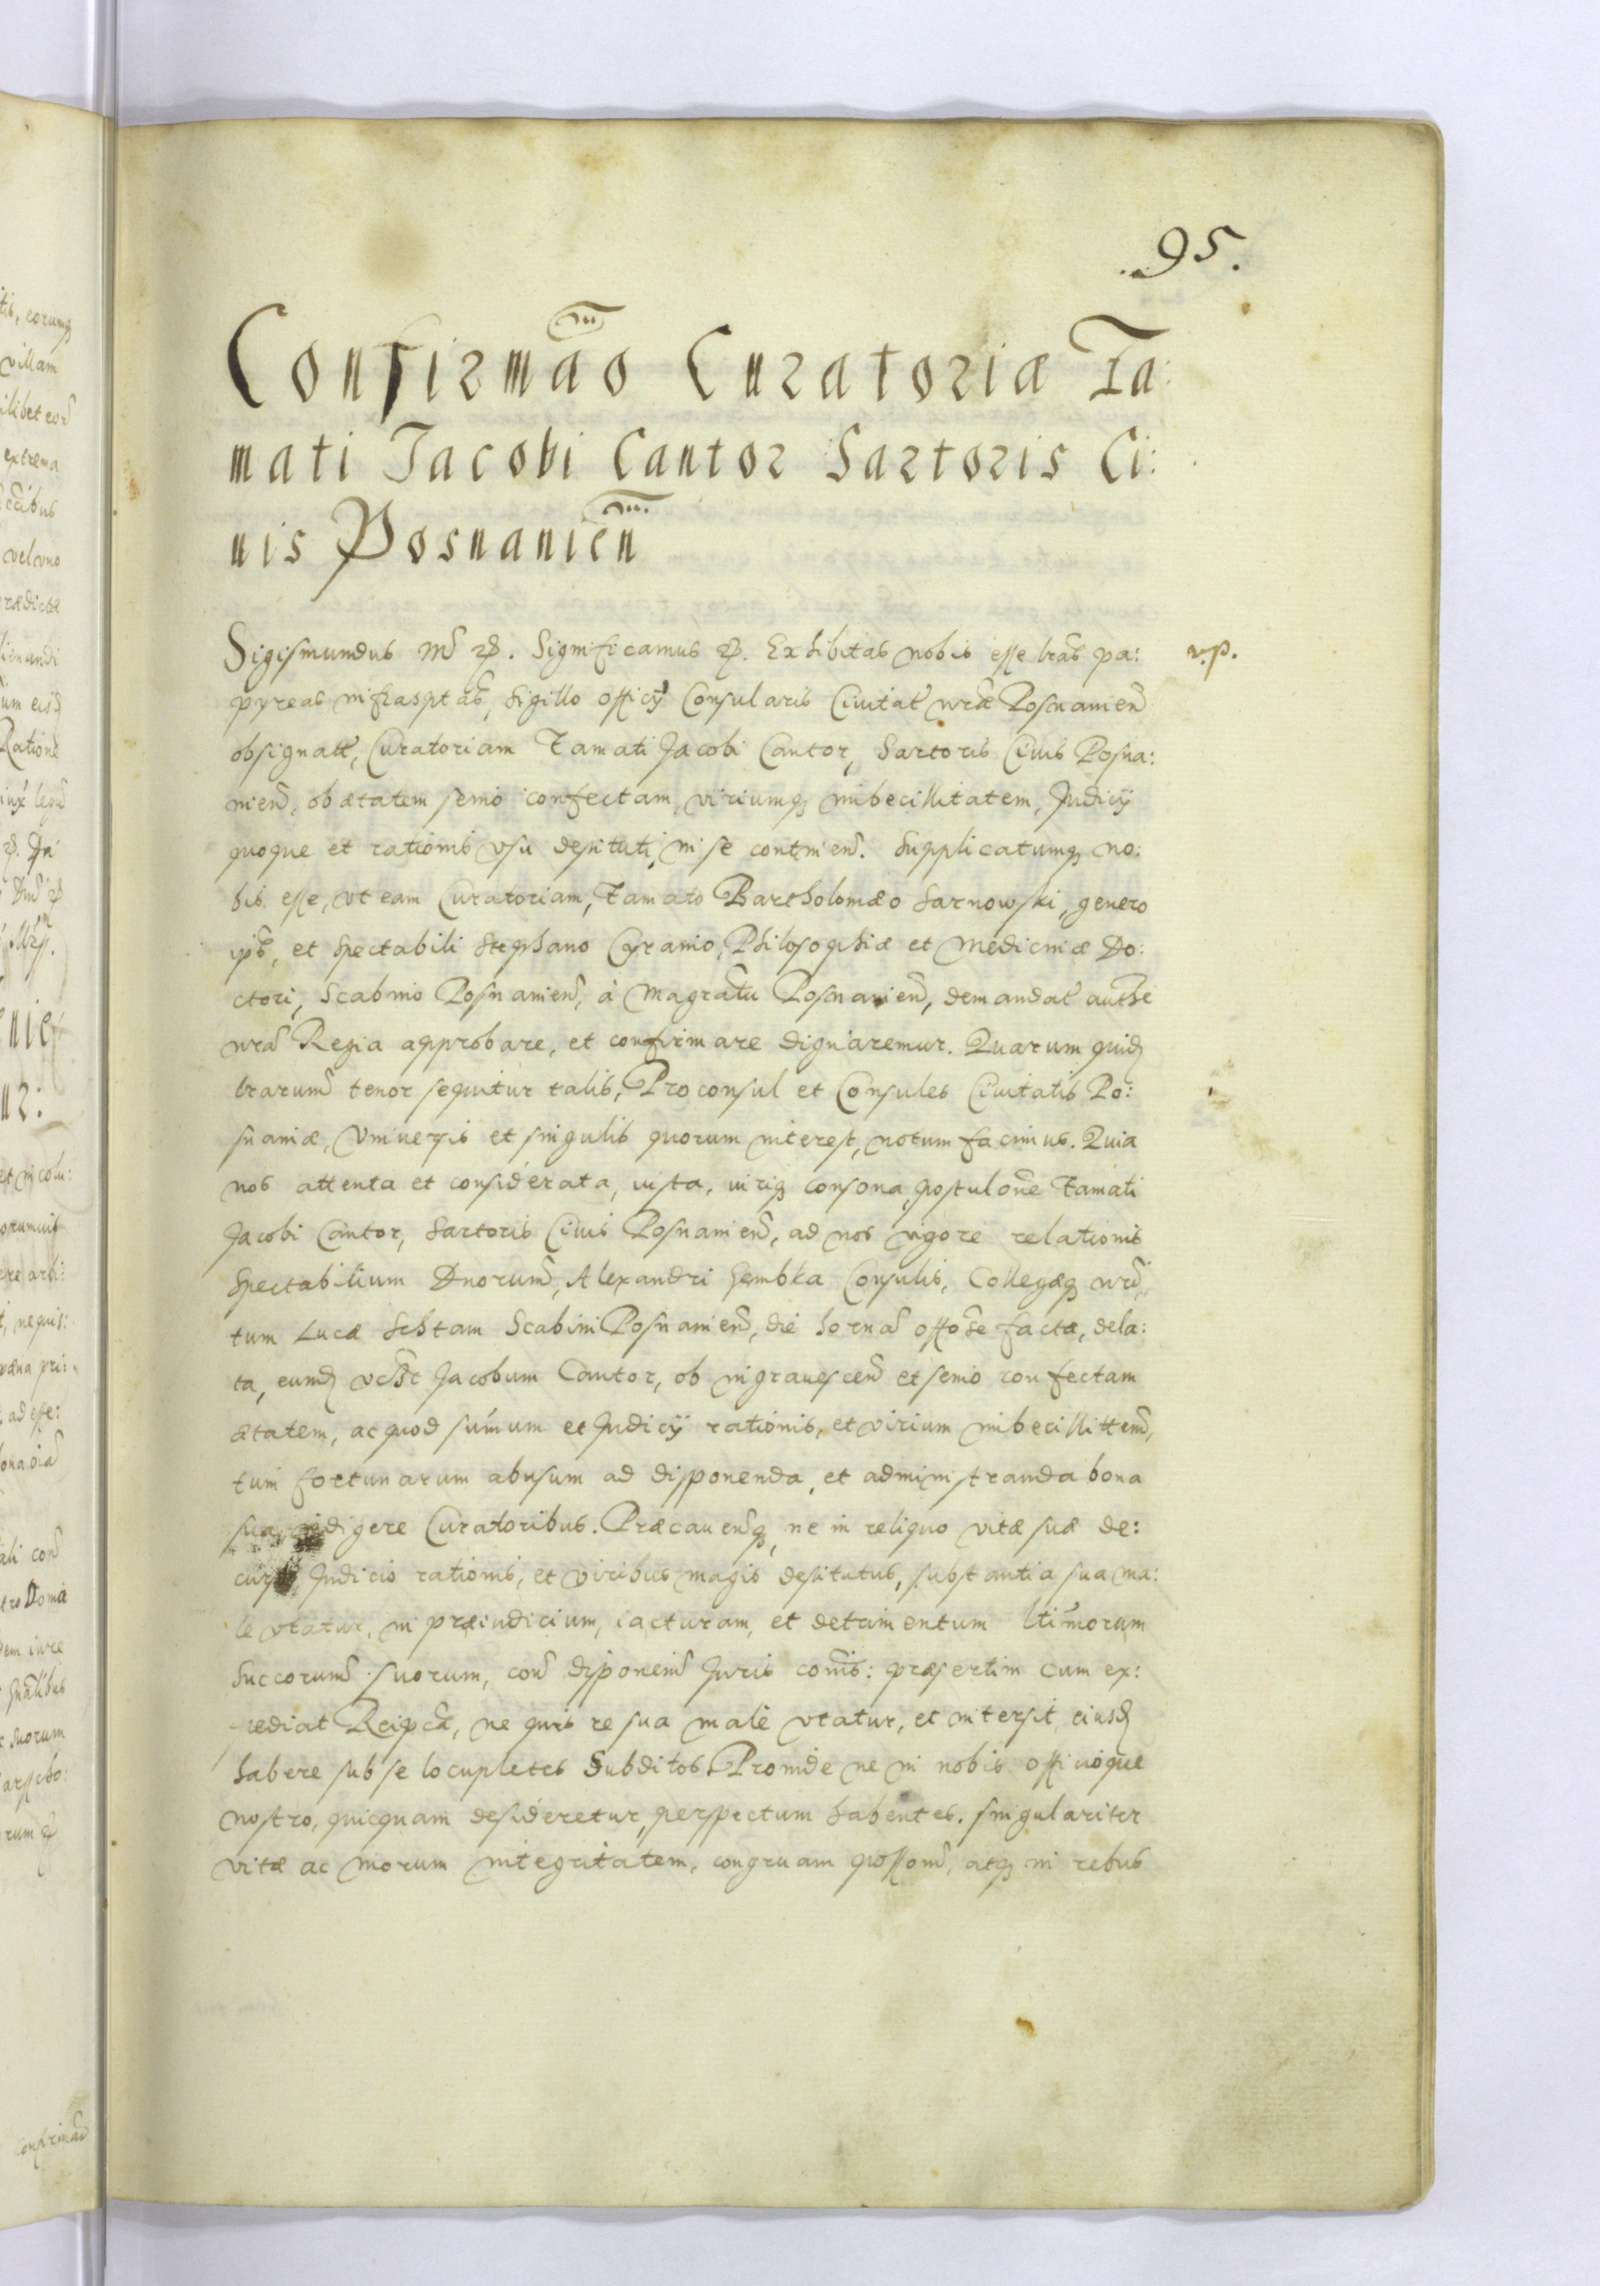 95.
Confirmão Curatoriæ Fa:
mati Jacobi Cantor Sartoris Ci:
uis Posnanien̄
Sigismundus etc. Significamus etc. Exhibitas nobis esse lras̃ pa:
v.p.
pyreas infrasptas̃, Sigillo Officij Consularis Ciuitat̃ nr̃æ Posnanien̄
obsignat̃, Curatoriam Famati Jacobi Cantor, Sartoris Ciuis Posna:
nien̄, ob ætatem senio confectam, viriumq imbecillitatem, Judicij
quoque et rationis vsu destituti, in se continen̄. Supplicatumq no:
bis esse, vt eam Curatoriam, Famato Bartholomæo Sarnowski, genero
ips̃, et Spectabili Stephano Cyranio, Philosophiæ et Medicinæ Do:
ctori, Scabino Posnanien̄, à Magrãtu Posnanien̄, demandat̃ authẽ
nrã Regia approbare, et confirmare dignaremur. Quarum quid
lrarum̃ tenor sequitur talis, Proconsul et Consules Ciuitatis Po:
snaniæ, Vniuersis et singulis quorum interest, notum facimus. Quia
nos attenta et considerata, iusta, iuriq consona, postulone Famati
Jacobi Cantor, Sartoris Ciuis Posnanien̄, ad nos vigore relationis
Spectabilium Dnorum̃, Alexandri Gembka Consulis, Collegæq nrĩ,
tum Lucæ Schtam Scabini Posnanien̄, die hornã offosẽ factæ, dela:
ta, eund Jacobum Cantor, ob ingrauescen̄ et senio confectam
ætatem, ac quod sum̃um et Judicij rationis, et virium imbecillittem̃,
tum fortunarum abusum ad disponenda, et administranda bona
sua indigere Curatoribus. Præcauenq, ne in reliquo vitæ suæ de:
cursu Judicio rationis, et viribus magis destitutus, substantia sua ma:
le vtatur, in præiudicium, iacturam, et detrimentum ltĩmorum
Succorum̃ suorum, con̄ disponem̃ Juris comĩs: præsertim cum ex:
pediat Reipcæ̃, ne quis re sua male vtatur, et intersit eiusd
habere sub se locupletes Subditos. Proinde ne in nobis officioque
nostro, quicquam desideretur, perspectum habentes. singulariter
vitæ ac morum integritatem, congruam possom̃, atq in rebus